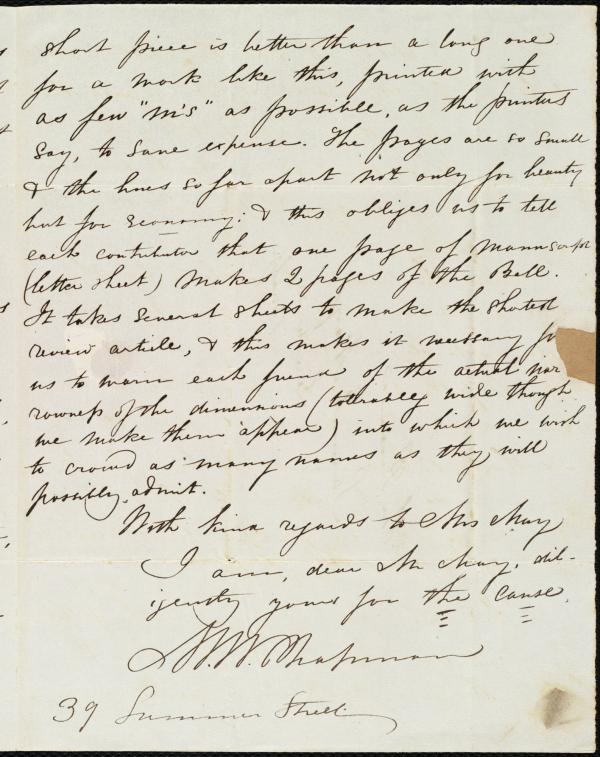 short piece is better than a long one
for a work like this, printed with
as few "m's" as possible, as the printers
say, to save expense. The pages are so small
& the lines so far apart not only for beauty
but for economy; & this obliges us to tell
each contributor that one page of manuscript
(letter sheet) makes 2 pages of the Bell.
It takes several sheets to make the shortest
review article, & this makes it necessary for
us to warn each friend of the actual nar
rowness of the dimensions (tolerably wide though
we make them appear) into which we wish
to crowd as many names as they will
possibly admit.
With kind regards to Mrs May
I am, dear Mr May, dil-
igently yours for the cause.
M. W. Chapman
39 Summer Street